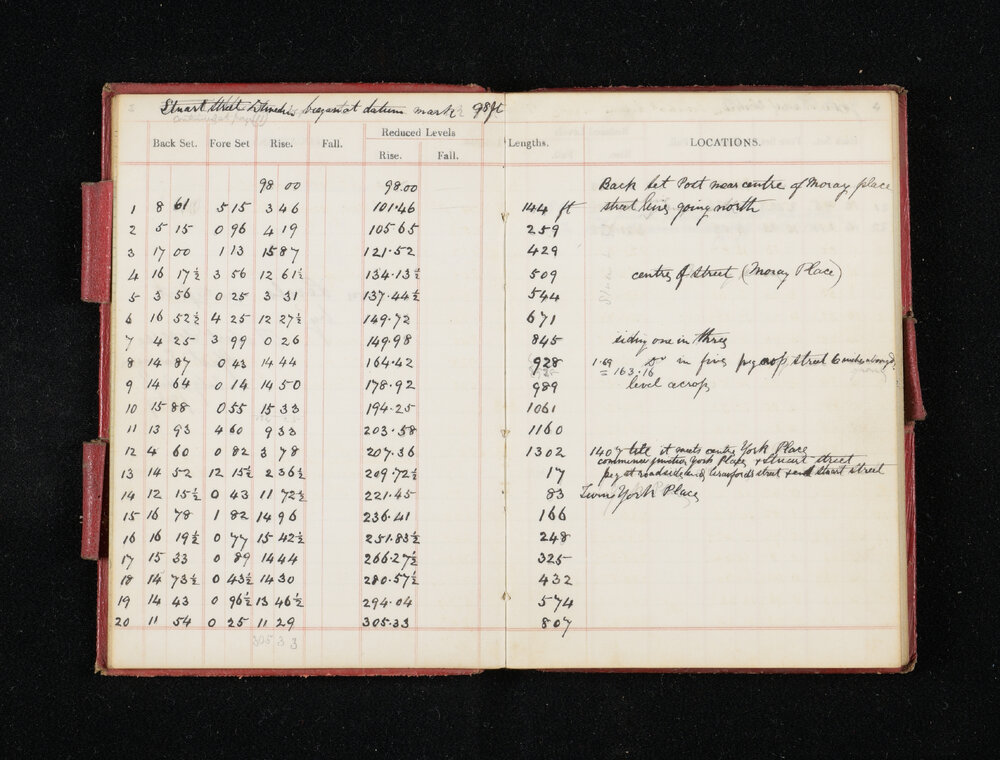 Stuart Street Dunedin began at datum mark 98 ft
continued at page
Reduced Levels
Back Set. Fore Set Rise. Fall. Rise. Fall. Lengths. LOCATIONS.
98 00 98.00 Back Set Post near centre of Moray place
1 8 61 5 15 3 46 101.46 144 ft street going north
2 5 15 0 96 4 19 105 65 259
3 17 00 1 13 15 87 121.52 429
4 16 17½ 3 56 12 61½ 134.13½ 509 centre of street (Moray Place)
5 3 56 0 25 3 31 137.44½ 544
6 16 52½ 4 25 12 27½ 149.72 671
7 4 25 3 99 0 26 149.98 845 siding one in three
8 14 87 0 43 14 44 164.42 928 1.69 Do in five peg street 6 inches
= 163.16
9 14 64 0 14 14 50 178.92 989 level across
10 15 88 0 55 15 33 194.25 1061
11 13 93 4 60 9 33 203.58 1160
12 4 60 0 82 3 78 207.36 1302 1407 till it meets centre York Place
commence junction York Place & Stuart street
13 14 52 12 15½ 2 36½ 209.72½ 17 peg at roadside street and Stuart street
14 12 15½ 0 43 11 72½ 221.45 83 York Place
15 16 78 1 82 14 96 236.41 166
16 16 19½ 0 77 15 42½ 251.83½ 248
17 15 33 0 89 14 44 266.27½ 325
18 14 73½ 0 43½ 14 30 280.57½ 432
19 14 43 0 96½ 13 46½ 294.04 574
20 11 54 0 25 11 29 305.33 807
305 33